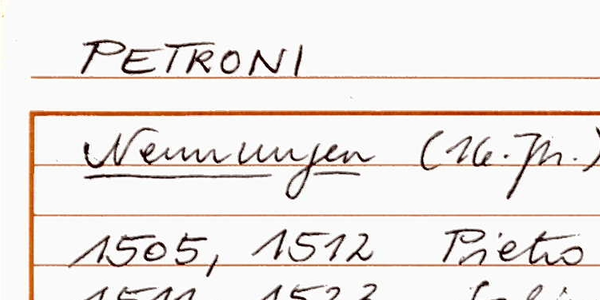 PETRONI
Nennungen (16. Jh.)
1505, 1512 Pietro
1511, 1523